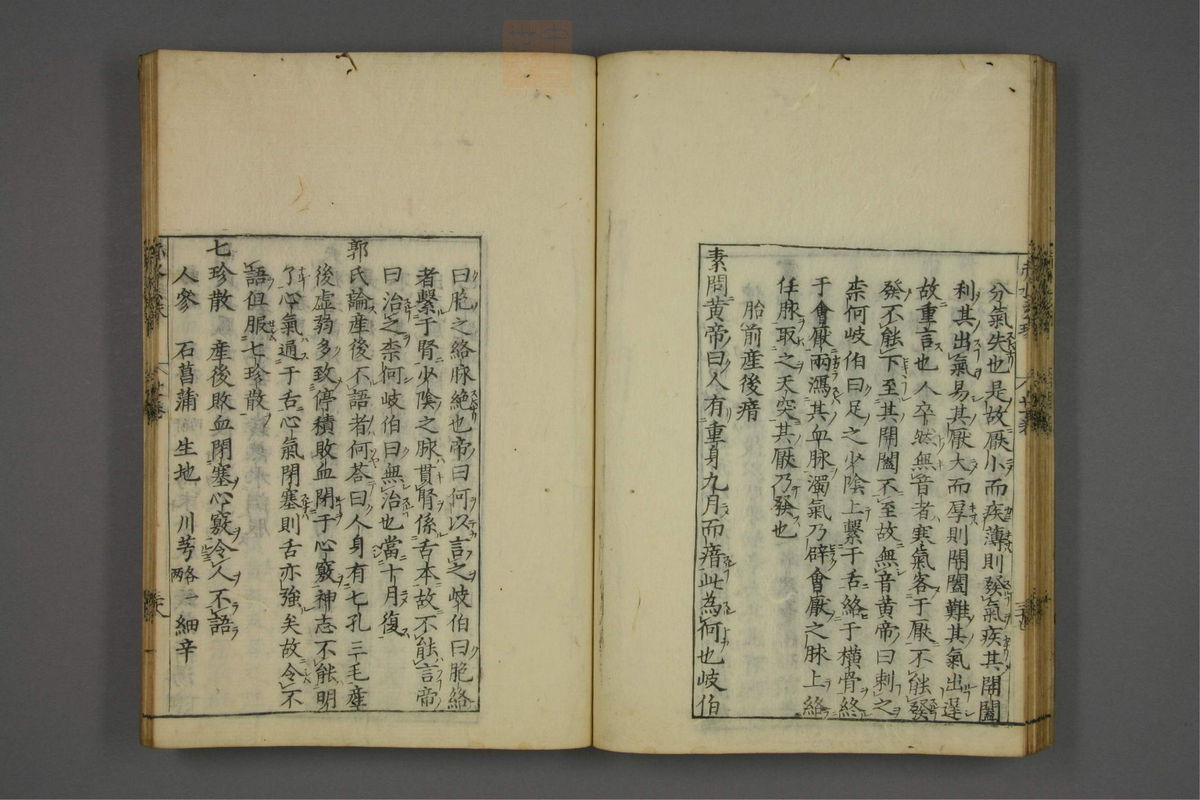 分氣失也是故厭小而疾薄則發氣疾其開闔
利其出氣易其厭大而厚則開闔難其氣出遲
故重言也人卒然無音者寒氣客于厭不能發
發不能下至其開闔不至故無音黃帝曰刺之
柰何岐伯曰足之少陰上繫于舌絡于橫骨終
于會厭兩瀉其血脉濁氣乃辟會厭之脉上絡
任脉取之天突其厭乃發也
胎前産後瘖
素問黃帝曰人有重身九月而瘖此為何也岐伯
曰胞之絡脉絕也帝曰何以言之岐伯曰胞絡
者繫于腎少陰之脉貫腎係舌本故不能言帝
曰治之柰何岐伯曰無治也當十月復
郭氏論産後不語者何荅曰人身有七孔三毛産
後虛弱多致停積敗血閉于心竅神志不能明
了心氣通于舌心氣閉塞則舌亦強矣故令不
語但服七珍散
七珍散 産後敗血閉塞心竅令人不語
人參 石菖蒲 生地 川芎各一兩 細辛